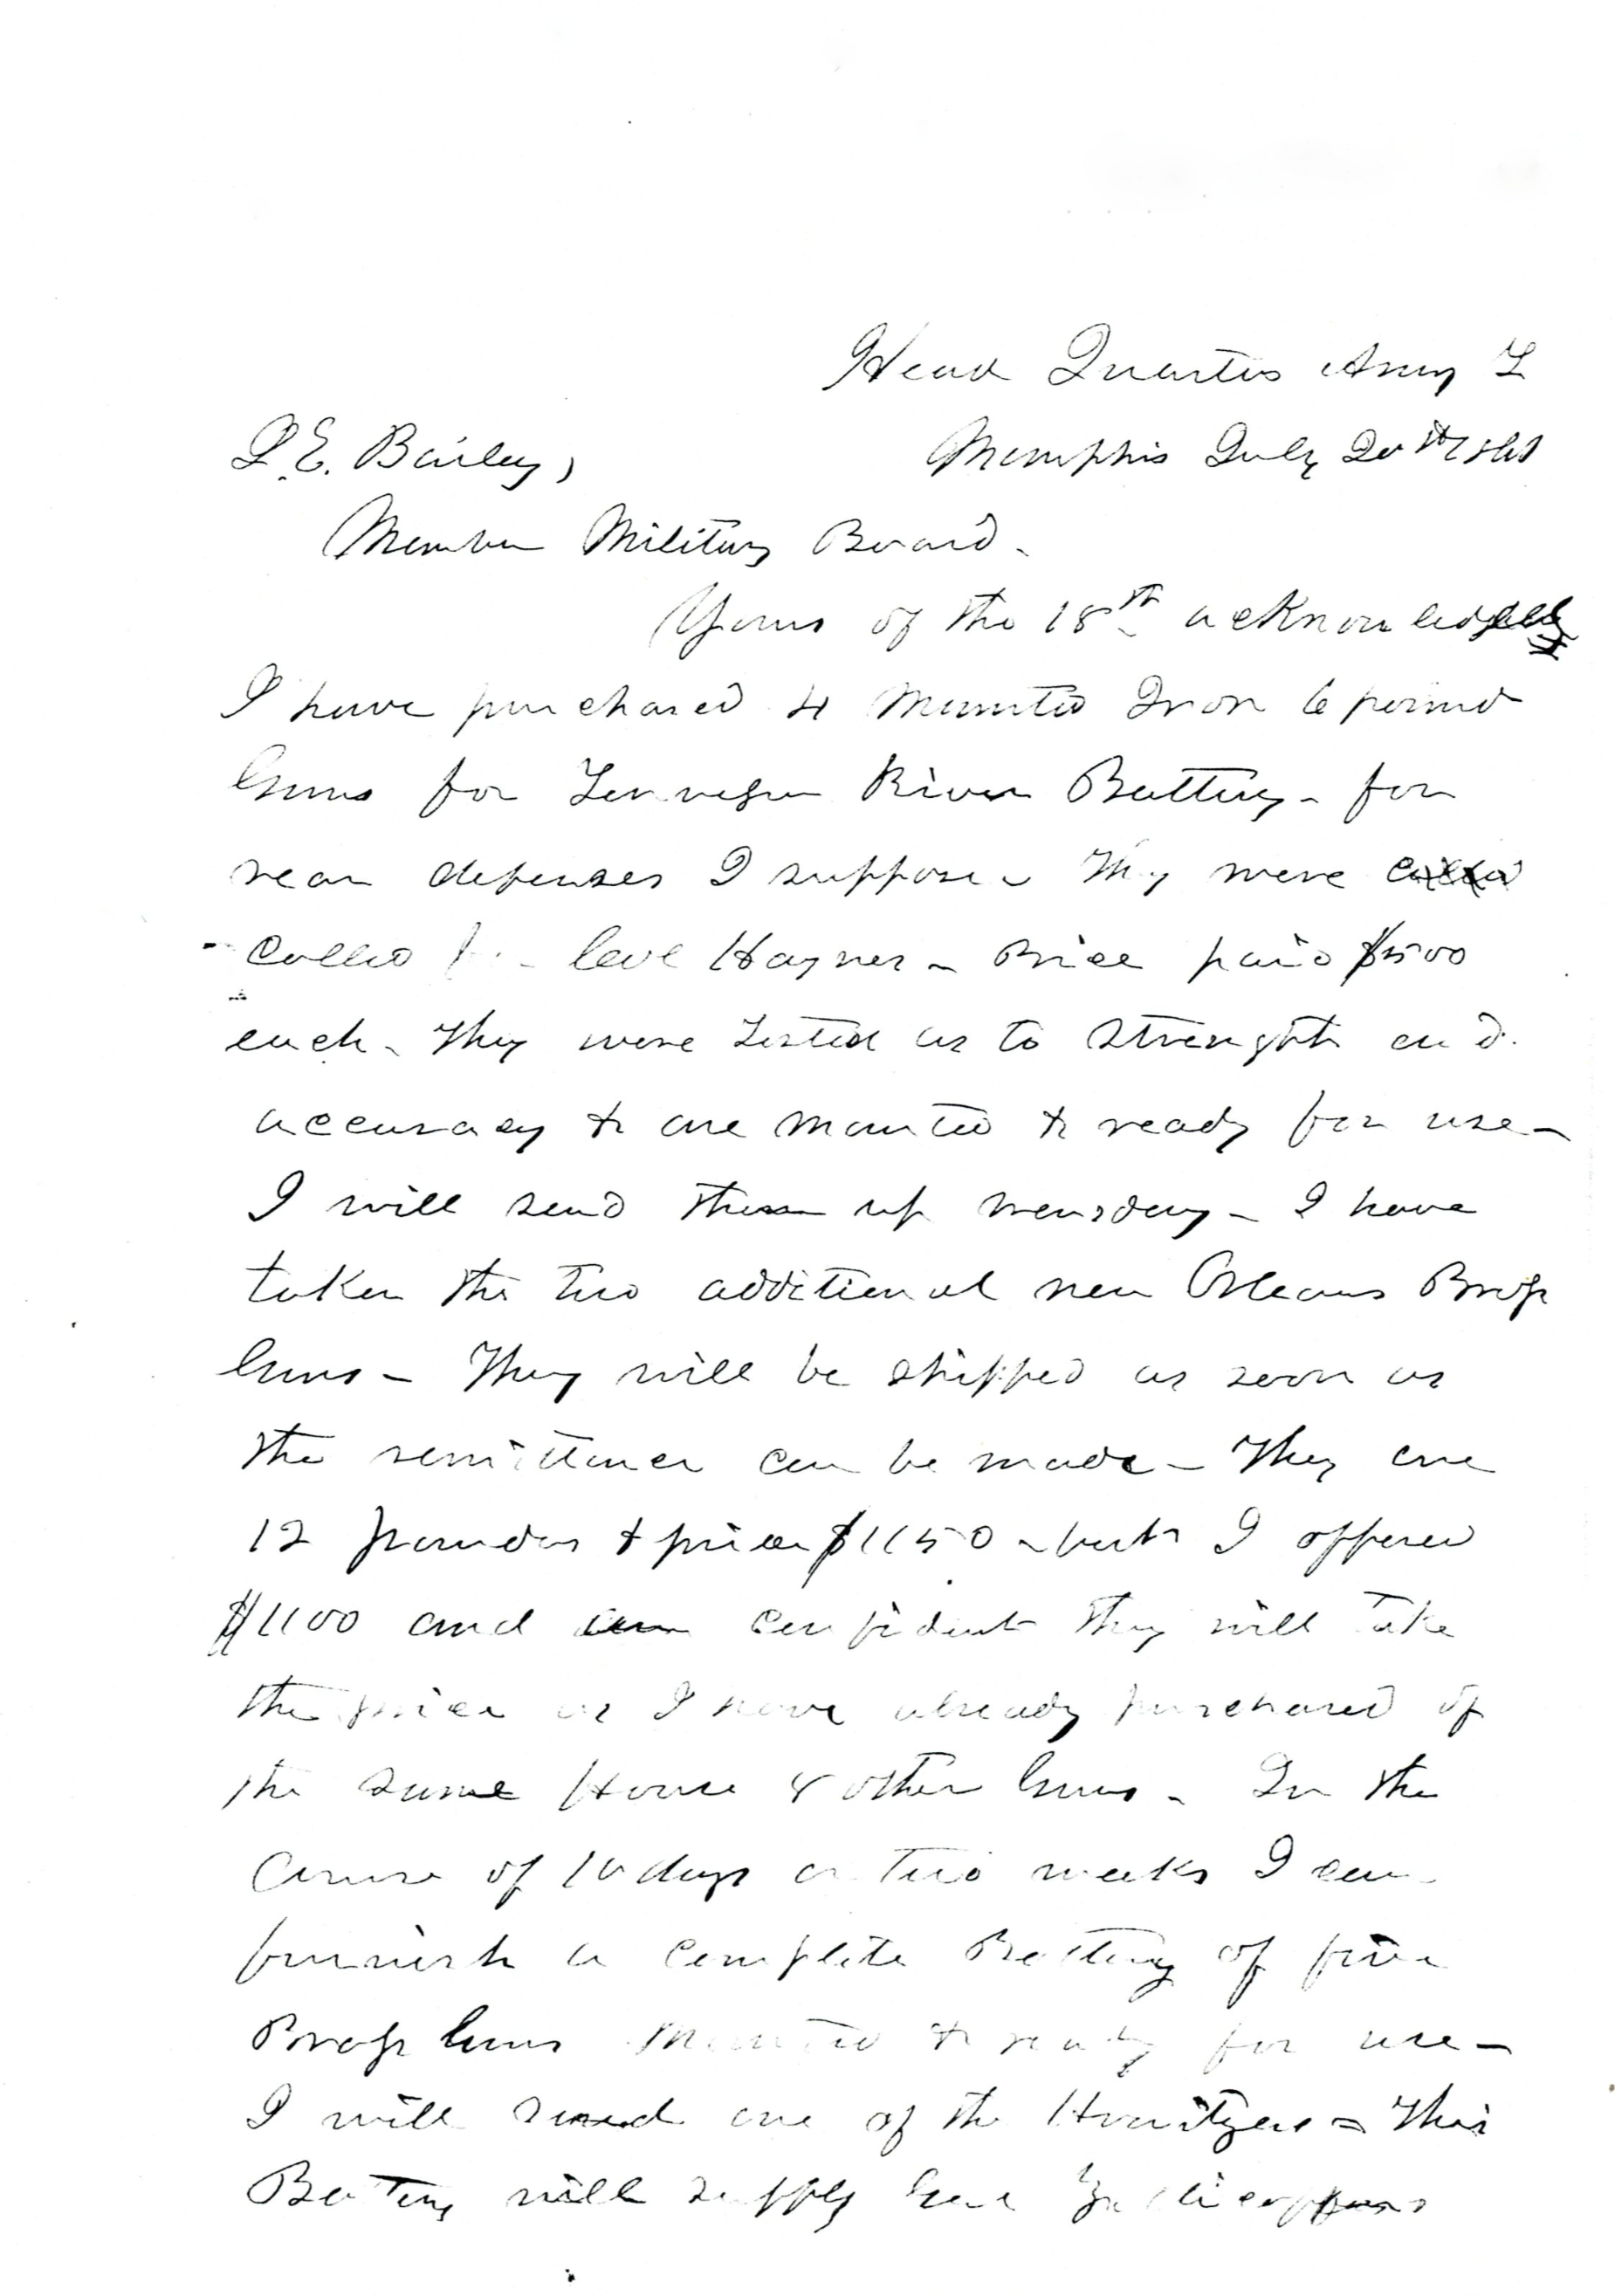 Head Quarters Army T
Memphis July 20th 1861
J. E. Bailey,
Member Military Board.
Yours of the 18th acknowledged
I have purchased 4 Mounted Iron 6 pound
Guns for Tennessee River Battery - for
rear defenses I suppose - They were
called for Col Haynes - Price paid $500
each - They were tested as to strength and
accuracy & are mounted & ready for use -
I will send them up Wensday - I have
taken the two additional New Orleans Brass
Guns - They will be shipped as soon as
the remittance can be made - They are
12 pounders & price $1150 - but I offered
$1100 and am confident they will take
the price as I have already purchased of
the same House 8 other Guns - In the
Course of 10 days or two weeks I can
furnish a complete Battery of five
Brass Guns Mounted & ready for use -
I will send one of the Howitzers - This
Battery will supply Genl